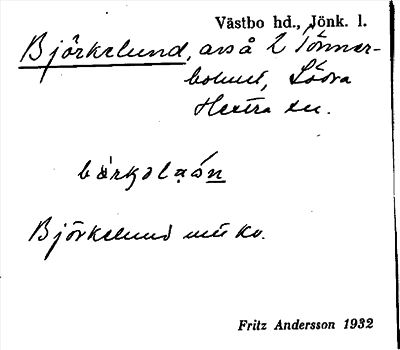 Västbo hd., Jönk. l.
Björkelund, avs å 2 Tönner-
bohult, Södra
Hestra sn.
Björkelund
Fritz Andersson 1932